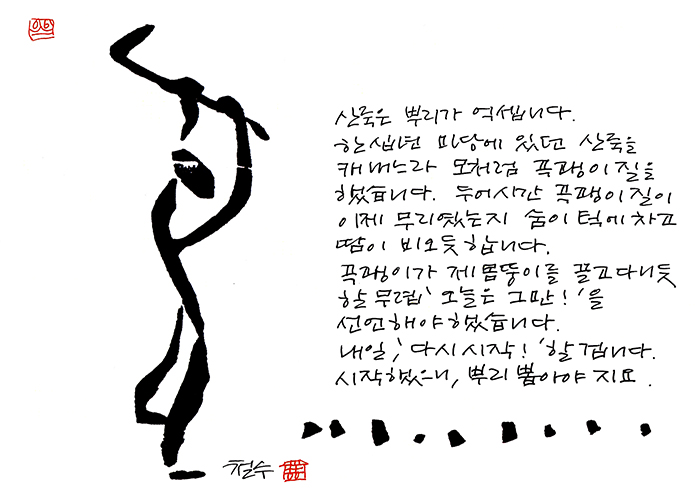 산죽은 뿌리가 억셉니다.
한십년 마당에 있던 산죽을
캐내느라 모처럼 곡괭이질을
했습니다. 두어시간 곡괭이질이
이제 무리였는지 숨이 턱에 차고
땀이 비오듯 합니다.
곡괭이가 제 몸뚱이를 끌고다니듯
할 무렵 '오늘은 그만!'을
선언해야 했습니다.
내일, '다시 시작!' 할 겁니다.
시작했으니, 뿌리 뽑아야 지요.
철수